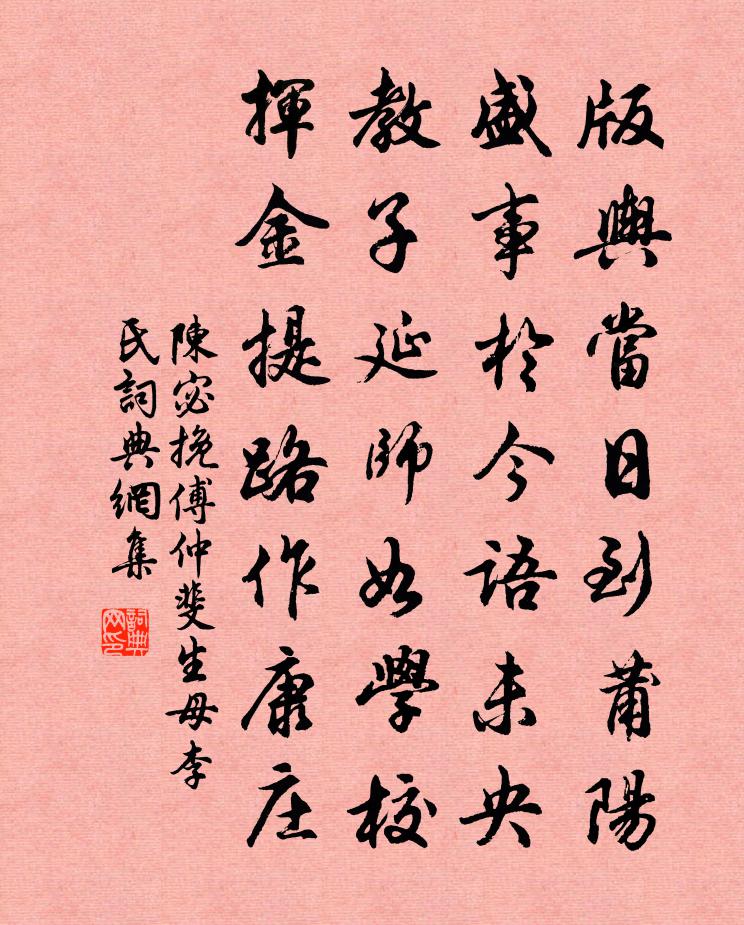 版輿當日到莆陽
盛事於今語未央
教子延師如學校
揮金提路作康庄
陳宓挽傅仲斐生母李
氏詞典網集
詞典
网印